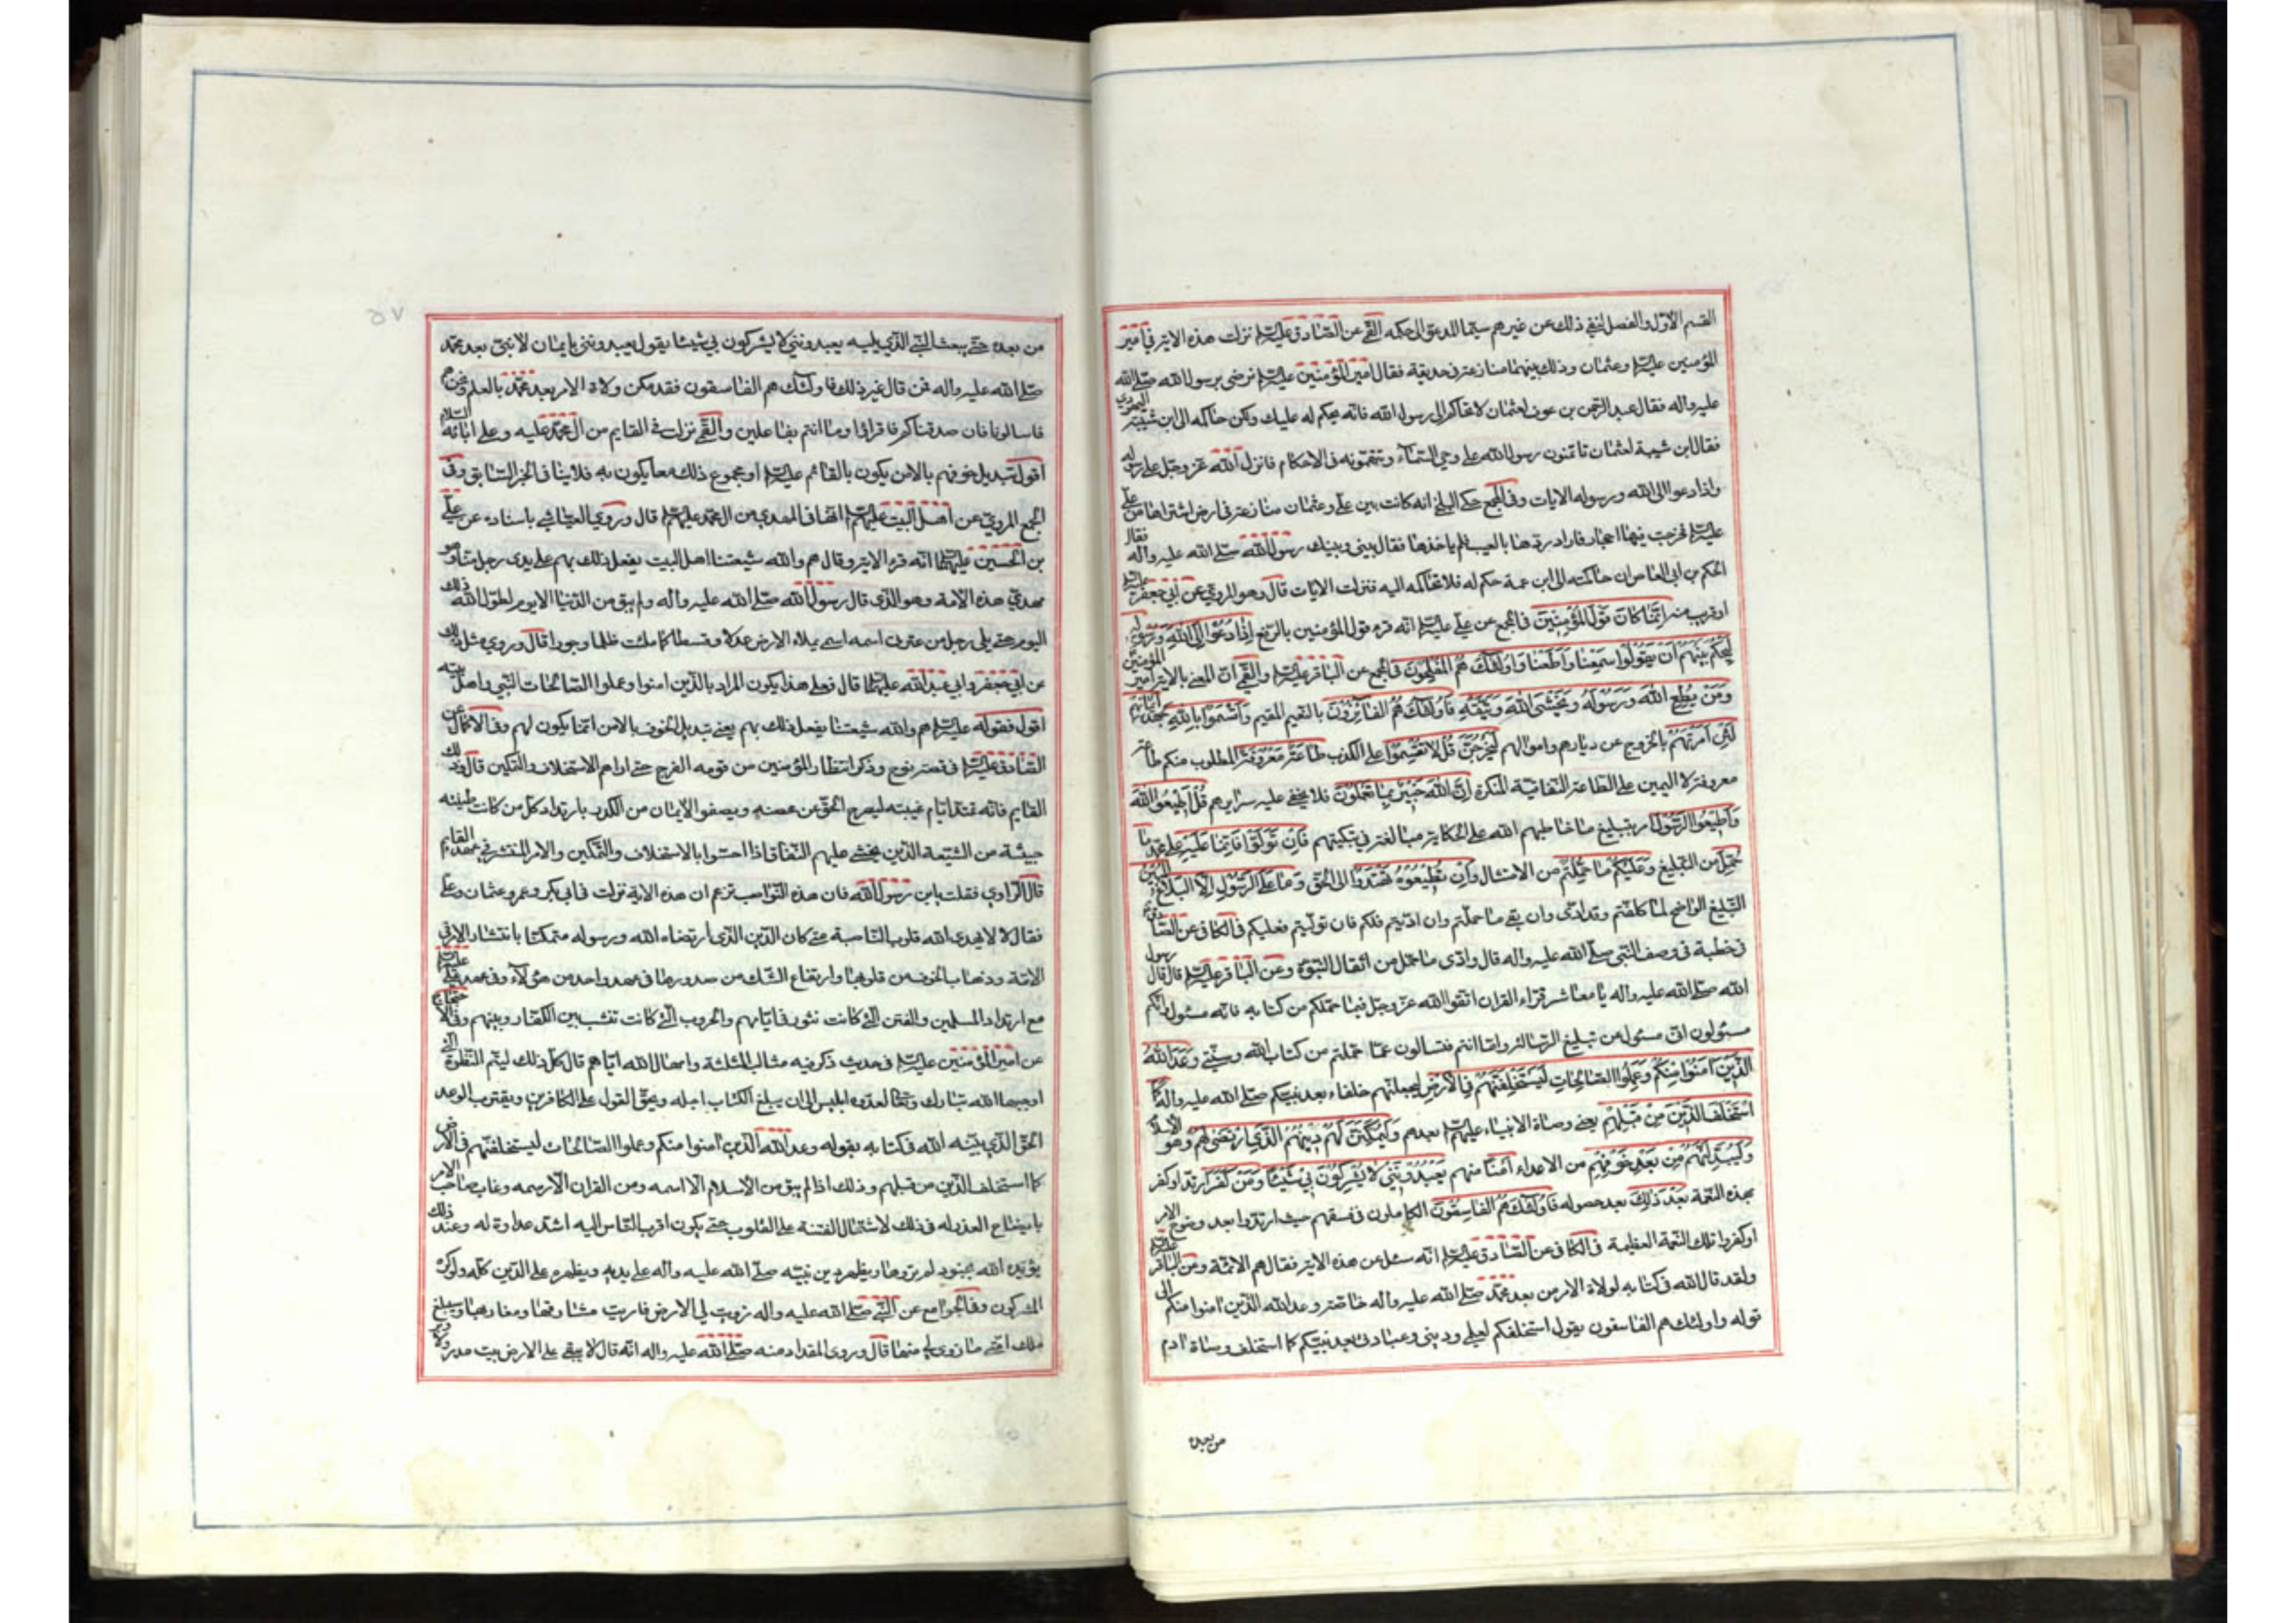 القسم الأول والفصل لنفي ذلك عن غيرهم سيما المدعو الى حكمه القمي عن الصادق عليه السلم نزلت هذه الاية في أمير
المؤمنين عليه السلم وعثمان وذلك بينهما منازعة في حديقة فقال امير المؤمنين عليه السلم ترضى برسول الله صلى الله
عليه واله فقال عبد الرحمن بن عوف لعثمان لا تحاكم الى رسول الله فانه يحكم له عليك ولكن حاكمه الى ابن شيبة اليهودي
فقال ابن شيبة لعثمان تاتمنون رسول الله على وحي السماء وتتهمونه في الاحكام فانزل الله عز وجل على رسوله
واذا دعوا الى الله ورسوله الايات وفي المجمع حكى البلخي انه كانت بين علي وعثمان منازعة في ارض اشتراها من علي
عليه السلم فخرجت فيها احجار فاراد ردها بالعيب فلم ياخذها فقال بيني وبينك رسول الله صلى الله عليه واله فقال
الحكم بن ابي العاص ان حاكمته الى ابن عمه حكم له فلا تحاكمه اليه فنزلت الايات قال وهو المروي عن أبي جعفر عليه السلم
او قريب منه إنما كان قول المؤمنين في المجمع عن علي عليه السلم انه قرء قول المؤمنين بالرفع إذا دعوا إلى الله ورسوله
ليحكم بينهم أن يقولوا سمعنا وأطعنا وأولئك هم المفلحون في المجمع عن الباقر عليه السلم والقمي ان المعني بالاية أمير المؤمنين
ومن يطع الله ورسوله ويخشى الله ويتقه فأولئك هم الفائزون بالنعيم المقيم وأقسموا بالله جهد أيمانهم
لئن أمرتهم بالخروج عن ديارهم واموالهم ليخرجن قل لا تقسموا على الكذب طاعة معروفة المطلوب منكم طاعة
معروفة لا اليمين على الطاعة النفاقية المنكرة إن الله خبير بما تعملون فلا يخفى عليه سرايرهم قل أطيعوا الله
وأطيعوا الرسول امر بتبليغ ما خاطبهم الله على الحكاية مبالغة في تبكيتهم فإن تولوا فإنما عليه على محمد ما
حمل من التبليغ وعليكم ما حملتم من الامتثال وإن تطيعوه تهتدوا الى الحق وما على الرسول إلا البلاغ المبين
التبليغ الواضح لما كلفتم وقد ادى وان بقي ما حملتم وان اديتم فلكم فان توليتم فعليكم في الكافي عن الصادق
في خطبة في وصف النبي صلى الله عليه واله قال وادى ما حمل من اثقال النبوة وعن الباقر عليه السلم قال قال رسول
الله صلى الله عليه واله يا معاشر قراء القران اتقوا الله عز وجل فيما حملكم من كتابه فانه مسئول وانكم
مسئولون اني مسئول عن تبليغ الرسالة واما انتم فتسالون عما حملتم من كتاب الله وسنتي وعد الله
الذين آمنوا منكم وعملوا الصالحات ليستخلفنهم في الأرض ليجعلنهم خلفاء بعد نبيكم صلى الله عليه واله كما
استخلف الذين من قبلهم يعني وصاة الانبياء عليهم السلم بعدهم وليمكنن لهم دينهم الذي ارتضى لهم وهو الاسلام
وليبدلنهم من بعد خوفهم من الاعداء أمنا منهم يعبدونني لا يشركون بي شيئا ومن كفر ارتد او كفر
بهذه النعمة بعد ذلك بعد حصوله فأولئك هم الفاسقون الكاملون في فسقهم حيث ارتدوا بعد وضوح الامر
او كفروا تلك النعمة العظيمة في الكافي عن الصادق عليه السلم انه سئل عن هذه الاية فقال هم الائمة وعن الباقر عليه السلم
ولقد قال الله في كتابه لولاة الامر من بعد محمد صلى الله عليه واله خاصة وعد الله الذين امنوا منكم الى
قوله واولئك هم الفاسقون يقول استخلفكم لعلمي وديني وعبادتي بعد نبيكم كما استخلف وصاة ادم
من بعده
٥٧
من بعده حتى يبعث النبي الذي يليه يعبدونني لا يشركون بي شيئا يقول يعبدونني بايمان لا نبي بعد محمد
صلى الله عليه واله فمن قال غير ذلك فاولئك هم الفاسقون فقد مكن ولاة الامر بعد محمد بالعلم ونحن هم
فاسالونا فان صدقناكم فاقرؤا وما انتم بفاعلين والقمي نزلت في القايم من ال محمد عليه وعلى ابائه السلام
اقول تبديل خوفهم بالامن يكون بالقائم عليه السلم او مجموع ذلك معا يكون به فلا ينافي الخبر السابق وفي
المجمع المروي عن أهل البيت عليهم السلم انها في المهدي من ال محمد عليهم السلم قال وروى العياشي باسناده عن علي
بن الحسين عليهما السلم انه قرء الاية وقال هم والله شيعتنا اهل البيت يفعل ذلك بهم على يدي رجل منا وهو
مهدي هذه الامة وهو الذي قال رسول الله صلى الله عليه واله ولم يبق من الدنيا الا يوم لطول الله ذلك
اليوم حتى يلي رجل من عترتي اسمه اسمي يملاء الارض عدلا وقسطا كما ملئت ظلما وجورا قال وروي مثل ذلك
عن ابي جعفر وابي عبد الله عليهما السلم قال فعلى هذا يكون المراد بالذين امنوا وعملوا الصالحات النبي واهل بيته
اقول فقوله عليه السلم هم والله شيعتنا يفعل ذلك بهم يعني تبديل الخوف بالامن انما يكون لهم وفي الاكمال عن
الصادق عليه السلم في قصة نوح وذكر انتظار المؤمنين من قومه الفرج حتى اراهم الاستخلاف والتمكين قال وكذلك
القايم فانه تمتد ايام غيبته ليصرح الحق عن محضه ويصفو الايمان من الكدر بارتداد كل من كانت طينته
خبيثة من الشيعة الذين يخشى عليهم النفاق فاذا احسوا بالاستخلاف والتمكين والامر المنتشر في عهد القايم
قال الراوي فقلت يابن رسول الله فان هذه النواصب تزعم ان هذه الاية نزلت في ابي بكر وعمر وعثمان وعلي
فقال لا لا يهدي الله قلوب الناصبة متى كان الدين الذي ارتضاه الله ورسوله متمكنا بانتشار الامن في
الامة وذهاب الخوف من قلوبها وارتفاع الشك من صدورها في عهد واحد من هؤلاء وفي عهد علي عليه السلم
مع ارتداد المسلمين والفتن التي كانت تثور في ايامهم والحروب التي كانت تنشب بين الكفار وبينهم وفي الاحتجاج
عن امير المؤمنين عليه السلم في حديث ذكر فيه مثالب الثلثة وامهال الله اياهم قال كل ذلك ليتم النظرة التي
اوجبها الله تبارك وتعالى لعدوه ابليس الى ان يبلغ الكتاب اجله ويحق القول على الكافرين ويقترب الوعد
الحق الذي بينه الله في كتابه بقوله وعد الله الذين امنوا منكم وعملوا الصالحات ليستخلفنهم في الارض
كما استخلف الذين من قبلهم وذلك اذا لم يبق من الاسلام الا اسمه ومن القران الا رسمه وغاب صاحب الامر
بايضاح العذر له في ذلك لاشتمال الفتنة على القلوب حتى يكون اقرب الناس اليه اشد عداوة له وعند ذلك
يؤيده الله بجنود لم تروها ويظهر دين نبيه صلى الله عليه واله على يديه ويظهره على الدين كله ولو كره
المشركون وفي الجوامع عن النبي صلى الله عليه واله زويت لي الارض فاريت مشارقها ومغاربها وسيبلغ
ملك امتي ما زوي لي منها قال وروى المقداد عنه صلى الله عليه واله انه قال لا يبقى على الارض بيت مدر ولا وبر